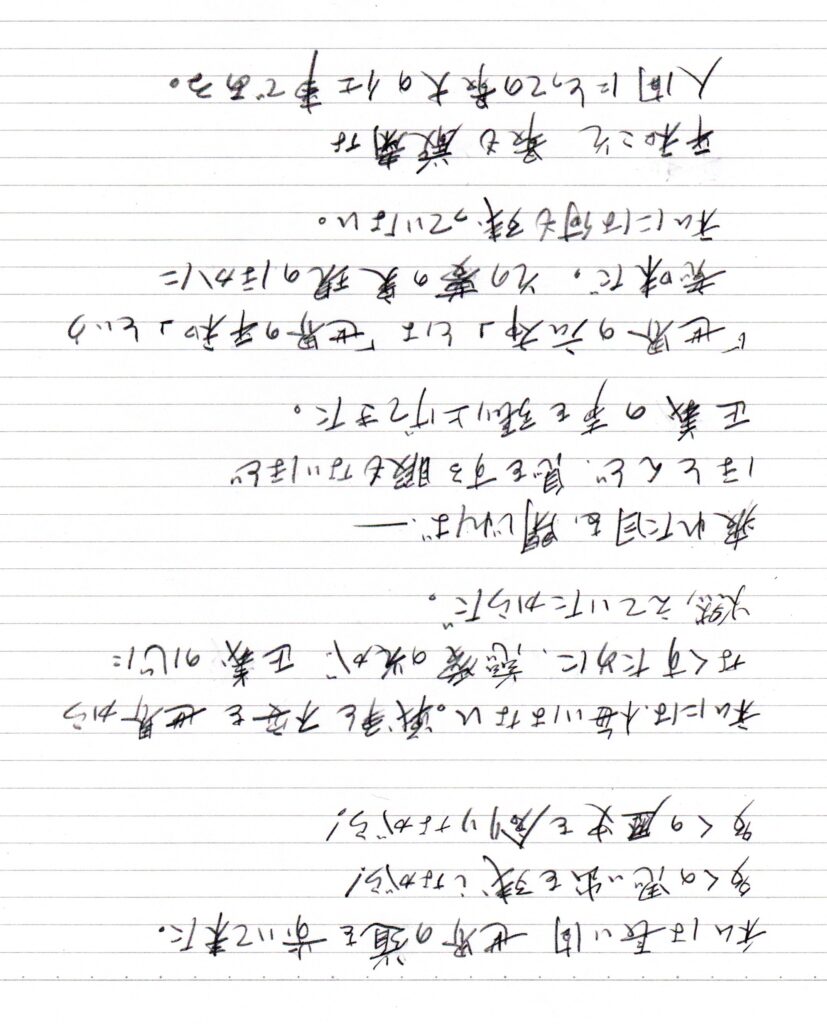 私は長い間 世界の道を歩いて来た。
多くの思い出を残しながら!
多くの歴史を創りながら!
私には悔いはない。戦争と不安を世界から
なくすために、慈愛の炎が、正義の心に
燃えていたからだ。
疲れた目を、閉じれば――
ほとんど、息をする暇もないほど
正義の事を張り上げてきた。
「世界の宗和」とは「世界の平和」という
意味だ。その夢の実現のほかに
私には何も残っていない。
平和こそ 最も厳粛な
人間にとっての最大の仕事である。